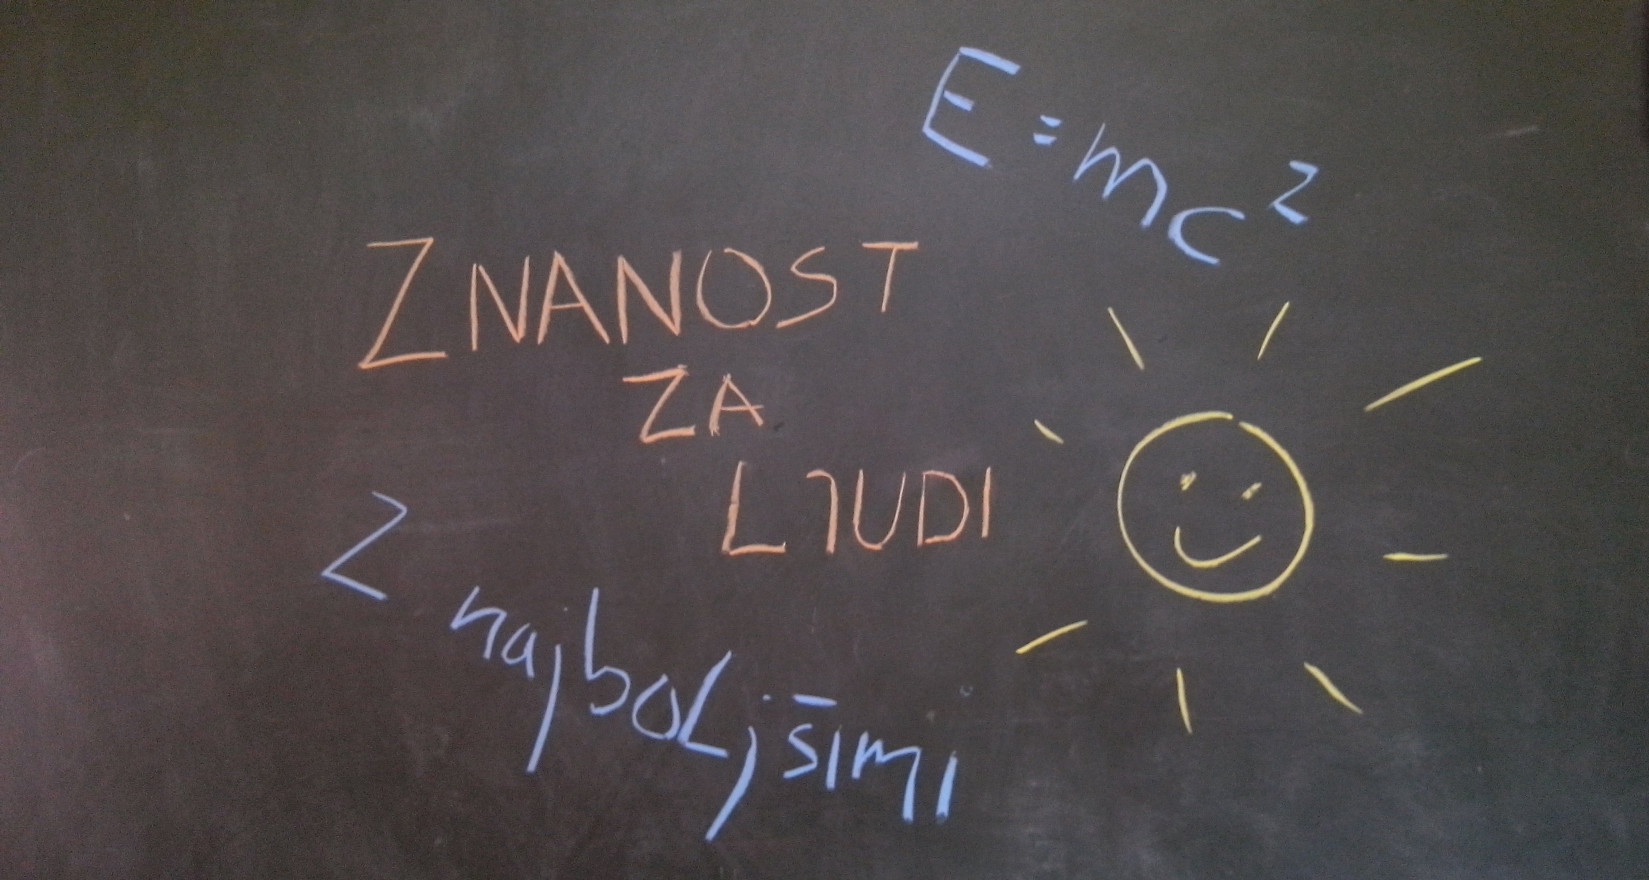 E = mc²
ZNANOST
ZA
LJUDI
Z najboljšimi